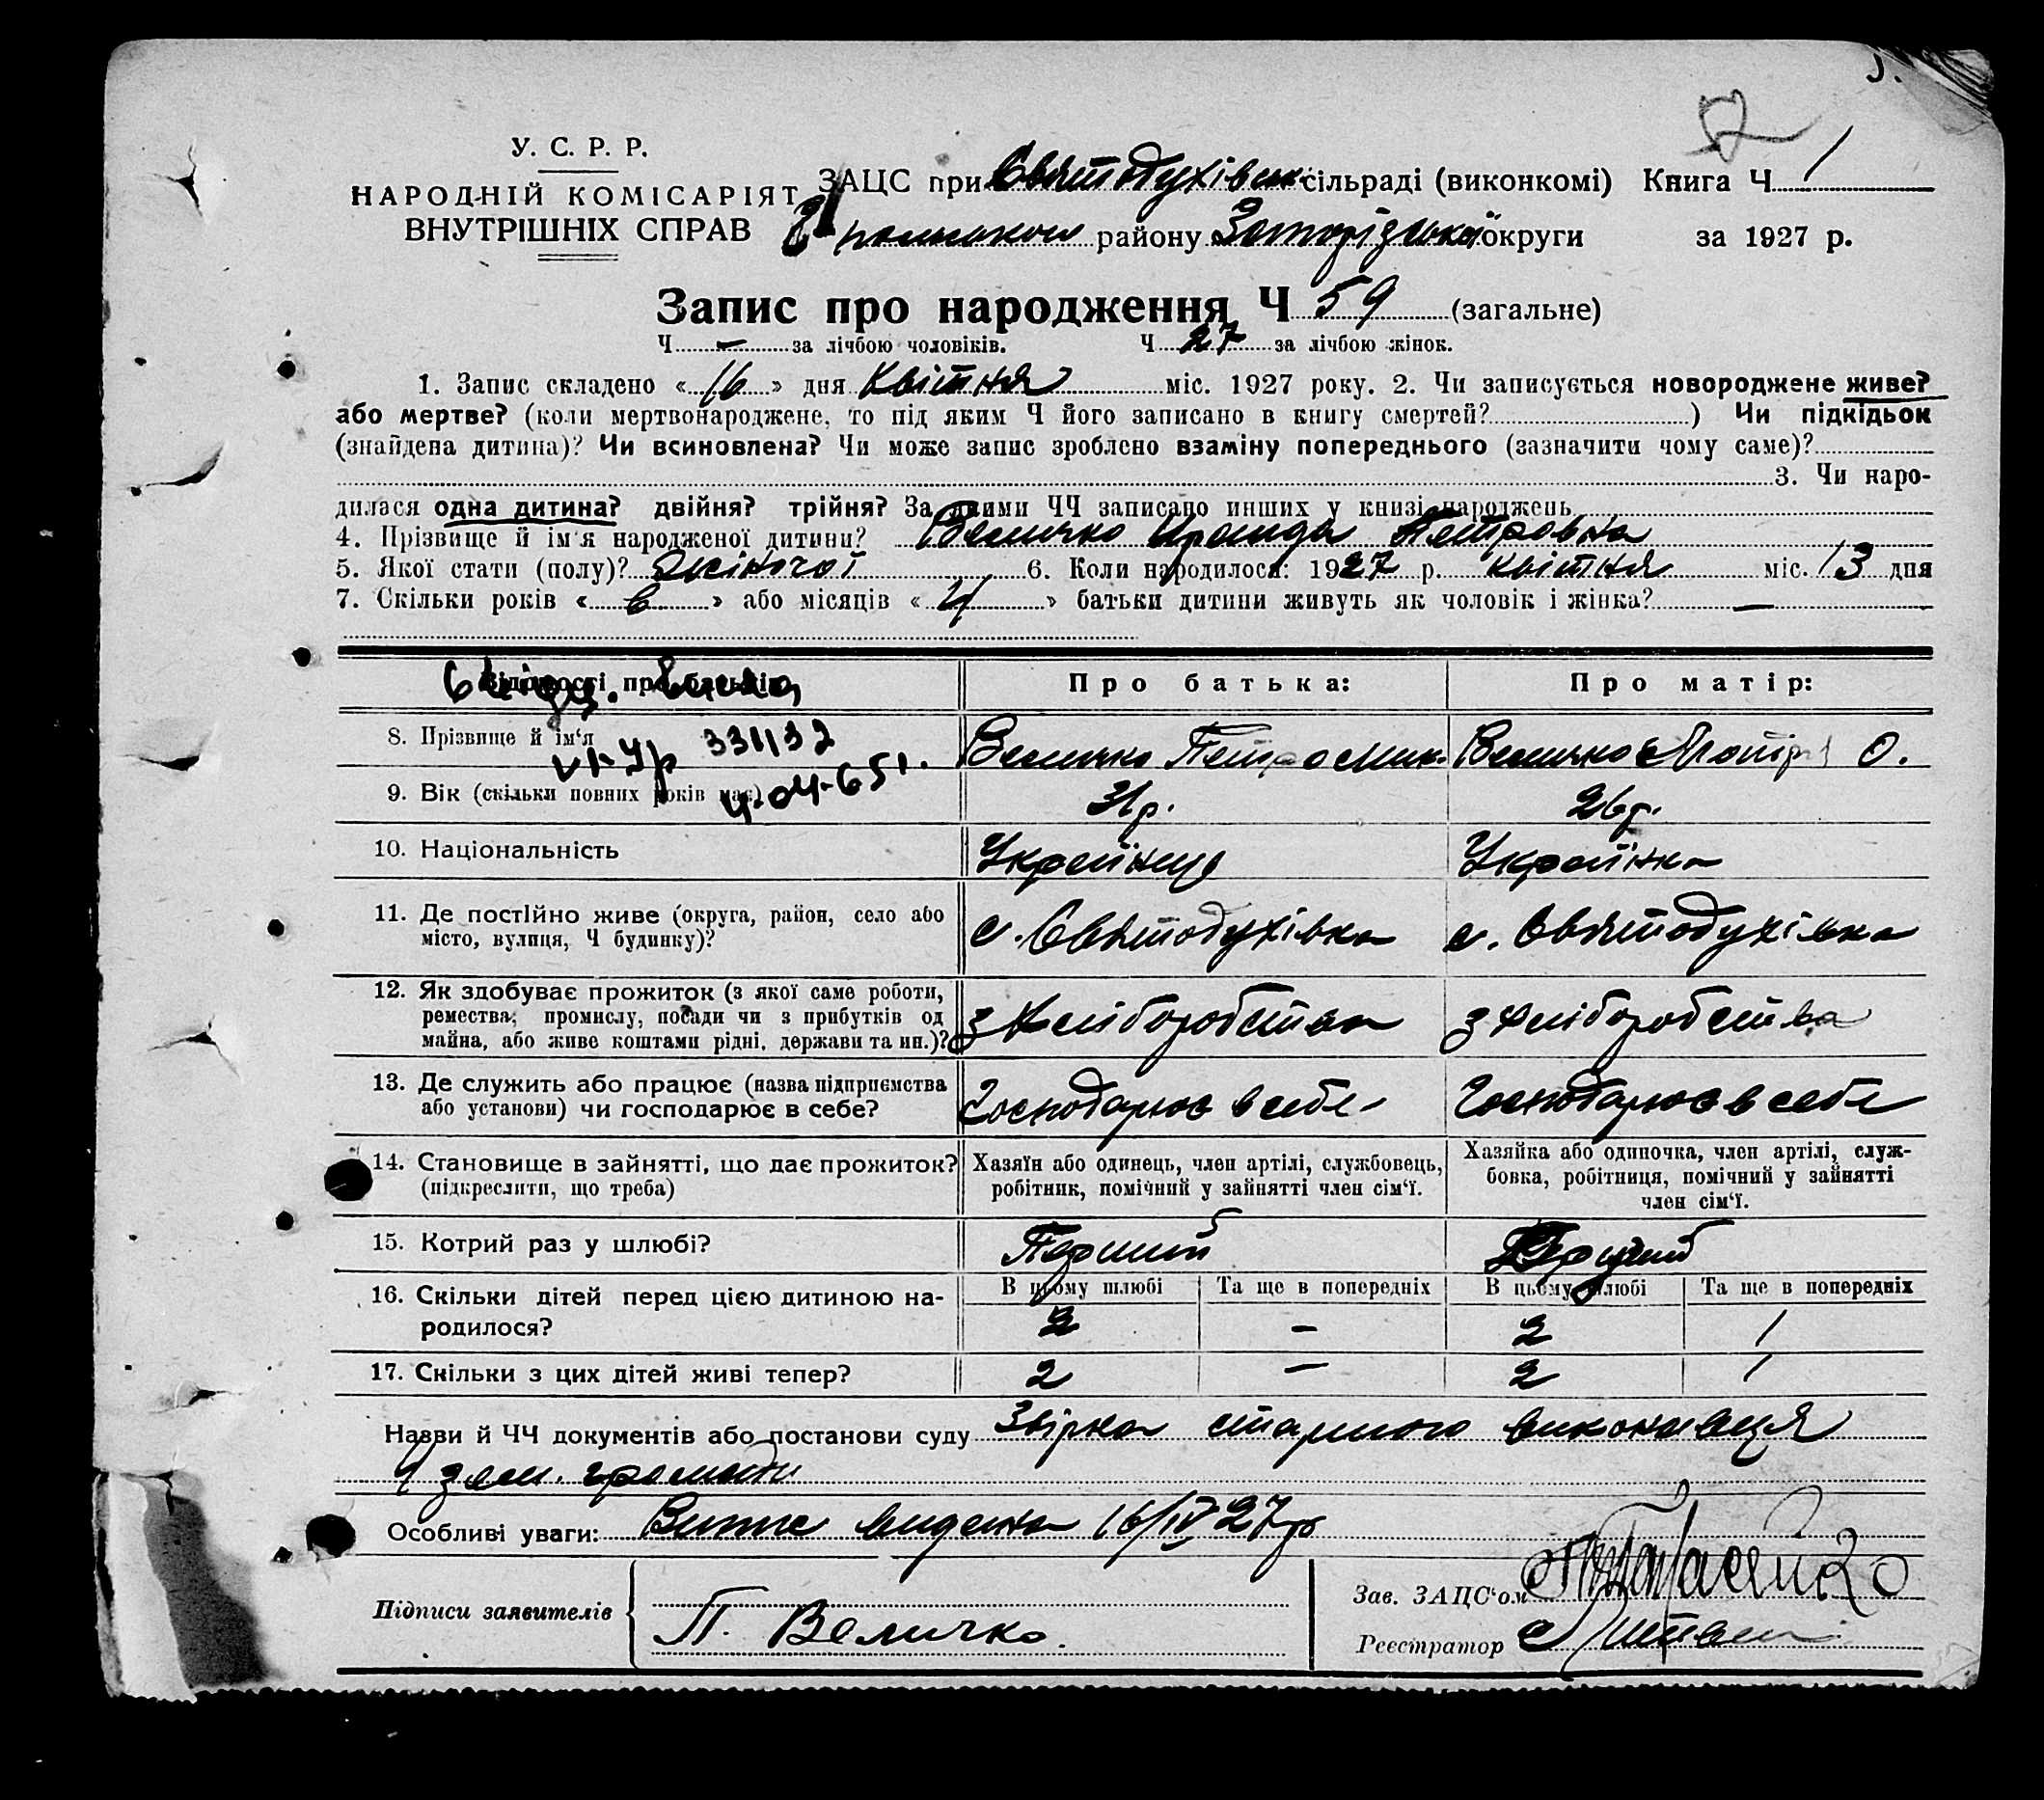 У. С. Р. Р.
НАРОДНІЙ КОМІСАРІЯТ
ВНУТРІШНІХ СПРАВ
ЗАЦС при Святодухівськ. сільраді (виконкомі) Книга Ч. 1
району Запорізької округи за 1927 р.
Запис про народження Ч 59 (загальне)
Ч. — за лічбою чоловіків. Ч 27 за лічбою жінок.
1. Запис складено « 16 » дня Квітня міс. 1927 року. 2. Чи записується новороджене живе?
або мертве? (коли мертвонароджене, то під яким Ч його записано в книгу смертей?) Чи підкідьок
(знайдена дитина)? Чи всиновлена? Чи може запис зроблено взаміну попереднього (зазначити чому саме)?
3. Чи наро-
дилася одна дитина? двійня? трійня? За якими ЧЧ записано инших у книзі народжень
4. Прізвище й ім'я народженої дитини? Величко Ираида Петровна
5. Якої стати (полу)? Жіночої 6. Коли народилося: 1927 р. квітня міс. 13 дня
7. Скільки років « 6 » або місяців « 4 » батьки дитини живуть як чоловік і жінка? —
Відомості про батьків
Про батька: Про матір:
8. Прізвище й ім'я Величко Петро Мик. Величко О.
331132
4-04-65г.
9. Вік (скільки повних років має) 31р. 26р.
10. Національність Українець Українка
11. Де постійно живе (округа, район, село або
місто, вулиця, Ч будинку)? с. Святодухівка с. Святодухівка
12. Як здобуває прожиток (з якої саме роботи,
ремества, промислу, посади чи з прибутків од
майна, або живе коштами рідні, держави та ин.)? з хліборобства з хліборобства
13. Де служить або працює (назва підприємства
або установи) чи господарює в себе? Господарює в себе Господарює в себе
14. Становище в зайнятті, що дає прожиток?
(підкреслити, що треба)
Хазяїн або одинець, член артілі, службовець,
робітник, помічний у зайнятті член сім'ї.
Хазяйка або одиночка, член артілі, служ-
бовка, робітниця, помічний у зайнятті
член сім'ї.
15. Котрий раз у шлюбі? Перший Другий
В цьому шлюбі Та ще в попередніх В цьому шлюбі Та ще в попередніх
16. Скільки дітей перед цією дитиною на-
родилося? 2 — 2 1
17. Скільки з цих дітей живі тепер? 2 — 2 1
Назви й ЧЧ документів або постанови суду Звірка старшого виконавця
зем. громади
Особливі уваги: Випис видана 16/IV 27р
Підписи заявителів
П. Величко.
Зав. ЗАЦС'ом
Реєстратор